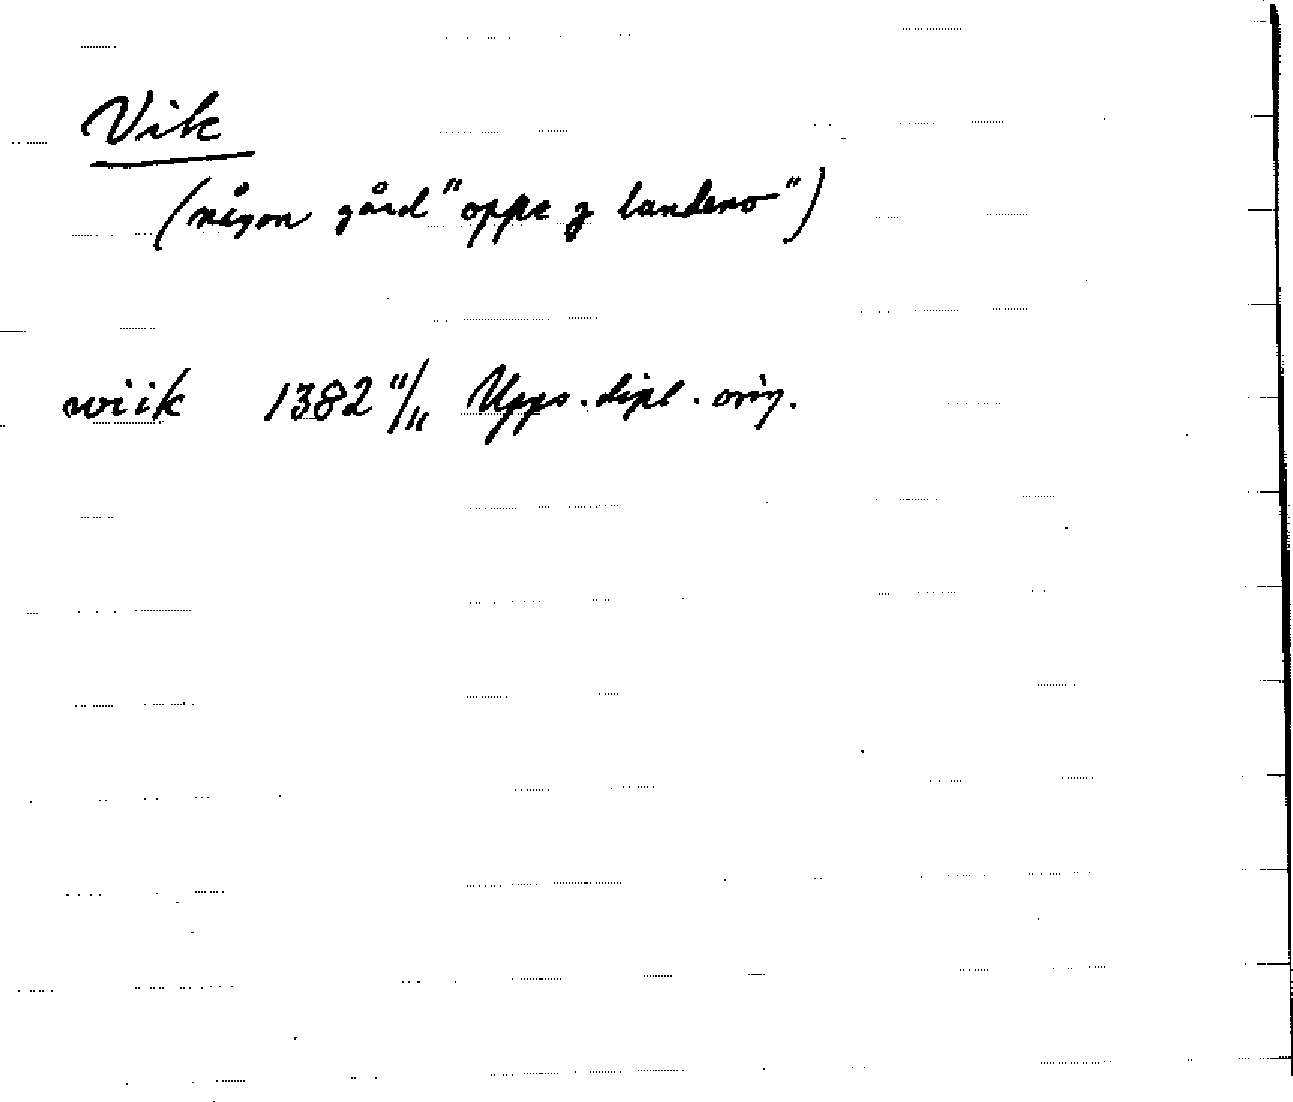 Vik
(någon gård "oppe j landeno")
wiik 1382 11/11 Upps. dipl. orig.